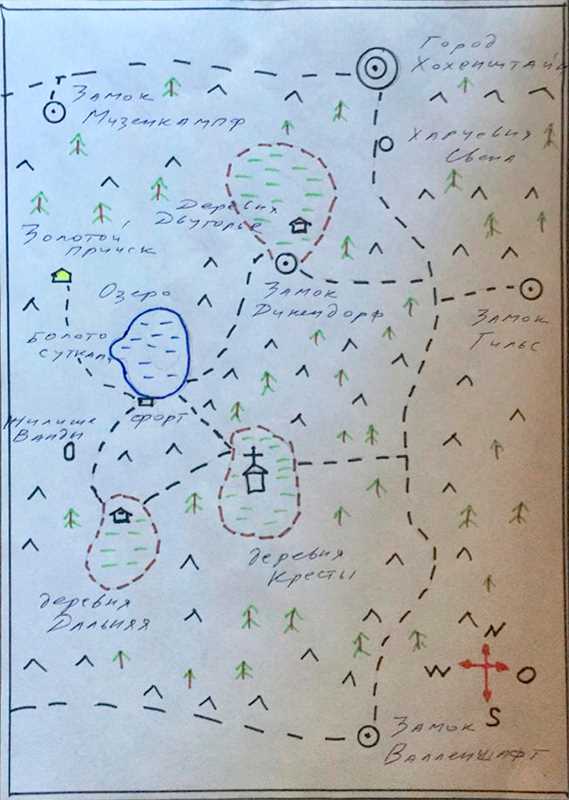 Город
Хохенштайн
Замок
Мизенкампф
Харчевня
Свена
Деревня
Двугорье
Золотой
прииск
Озеро
Замок
Дикендорф
Замок
Гильс
Болото
Жилище
Ванды
форт
деревня
Кресты
деревня
Дальняя
N
W O
S
Замок
Валленшафт